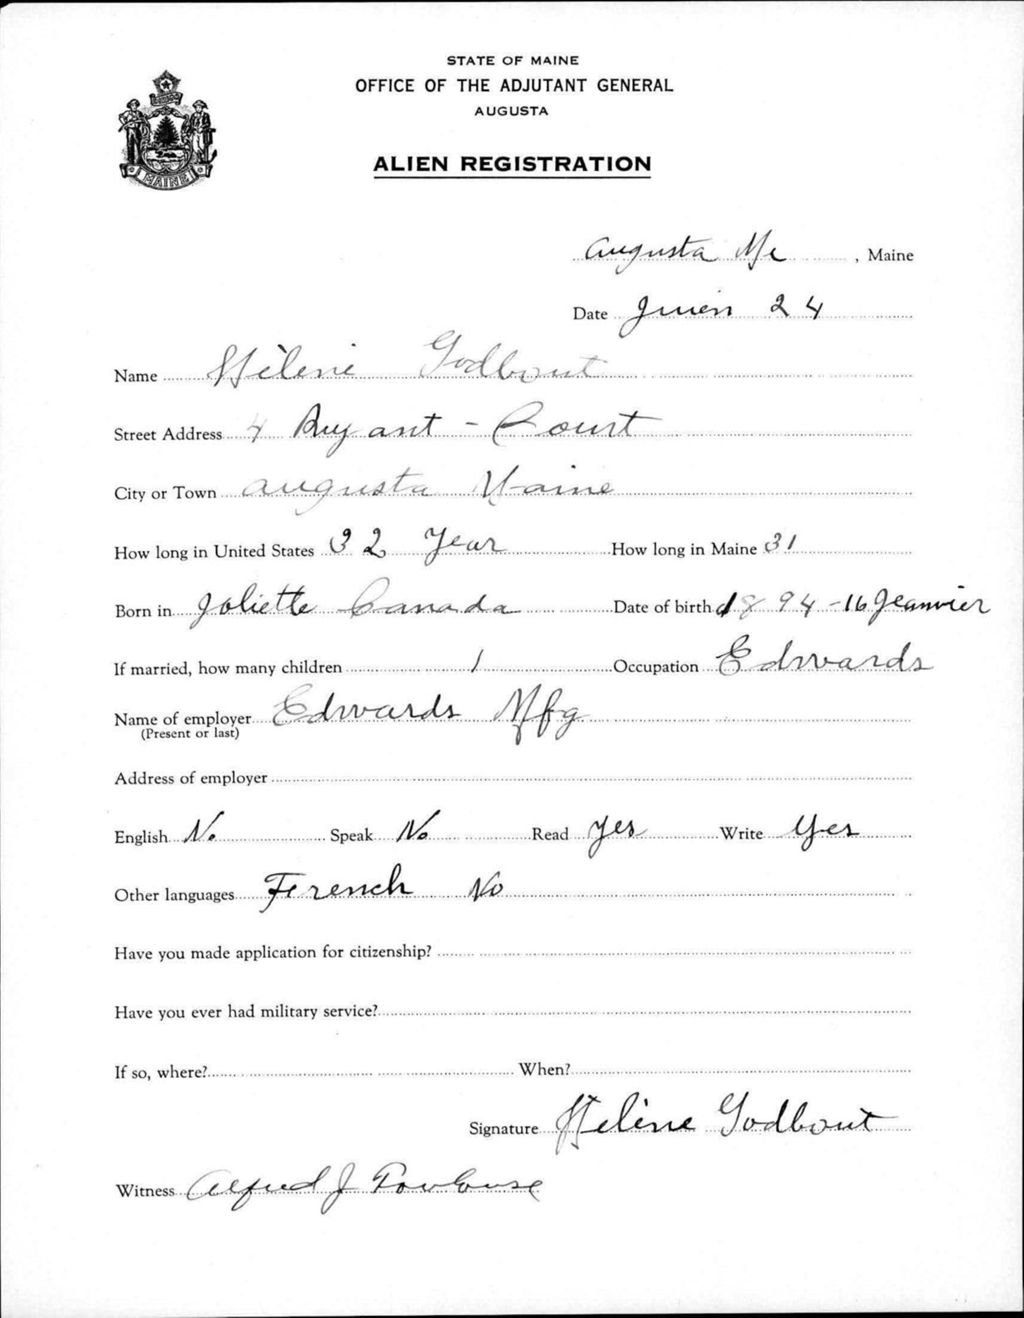 STATE OF MAINE
OFFICE OF THE ADJUTANT GENERAL
AUGUSTA
ALIEN REGISTRATION
MAINE
Augusta Me, Maine
Date Juien 24
Name Hélène Godbout
Street Address 4 Bryant - Court
City or Town Augusta Maine
How long in United States 32 Year How long in Maine 31
Born in Joliette Canada Date of birth 1894-16 Jeanvier
If married, how many children 1 Occupation Edwards
Name of employer Edwards Mfg
(Present or last)
Address of employer
English No Speak No Read Yes Write Yes
Other languages French No
Have you made application for citizenship?
Have you ever had military service?
If so, where? When?
Signature Hélène Godbout
Witness Alfred J Toulouse